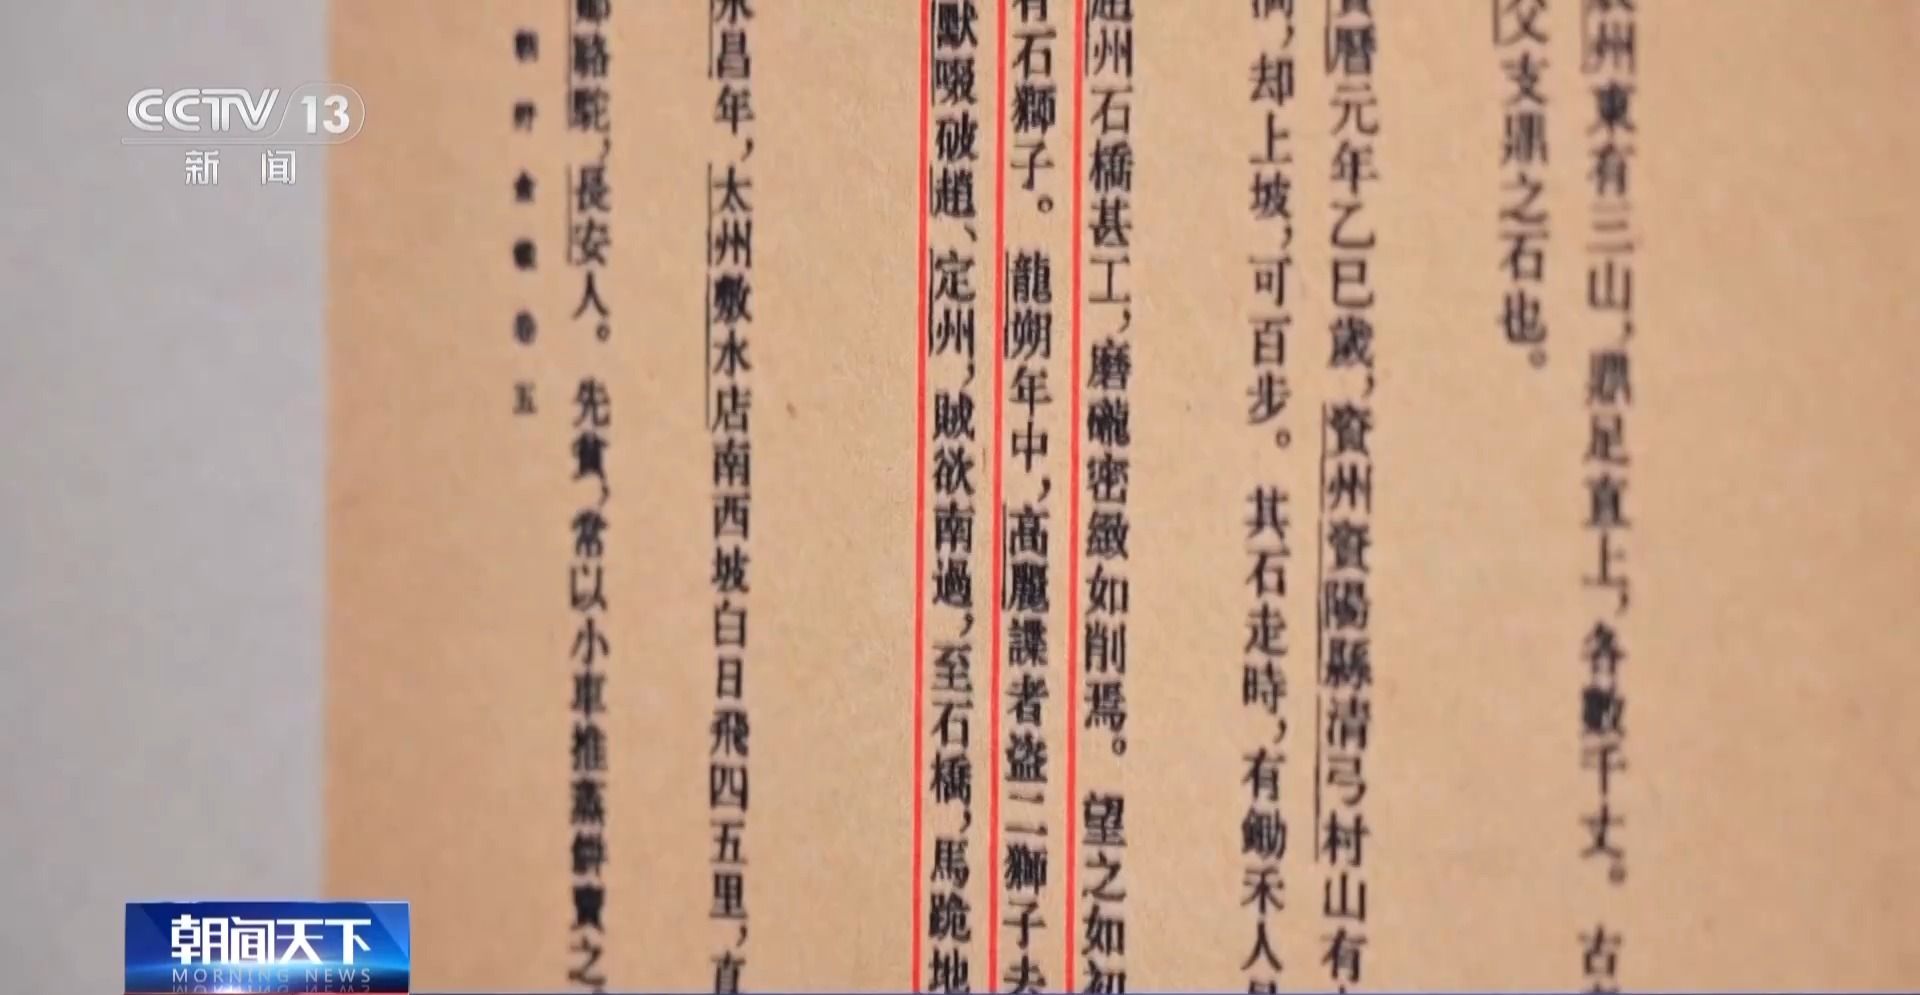 州東有三山，鼎足直上，各數千丈。古
父支鼎之石也。
曆元年乙巳歲，資州資陽縣清弓村山有
，却上坡，可百步。其石走時，有鋤禾人
趙州石橋甚工，磨礲密緻如削焉。望之如初
有石獅子。龍朔年中，高麗諜者盜二獅子去
默啜破趙、定州，賊欲南過，至石橋，馬跪地
永昌年，太州敷水店南西坡白日飛四五里，直
鄒駱駝，長安人。先貧，常以小車推蒸餅賣之。
朝野僉載卷五
CCTV 13
新闻
朝闻天下
MORNING NEWS